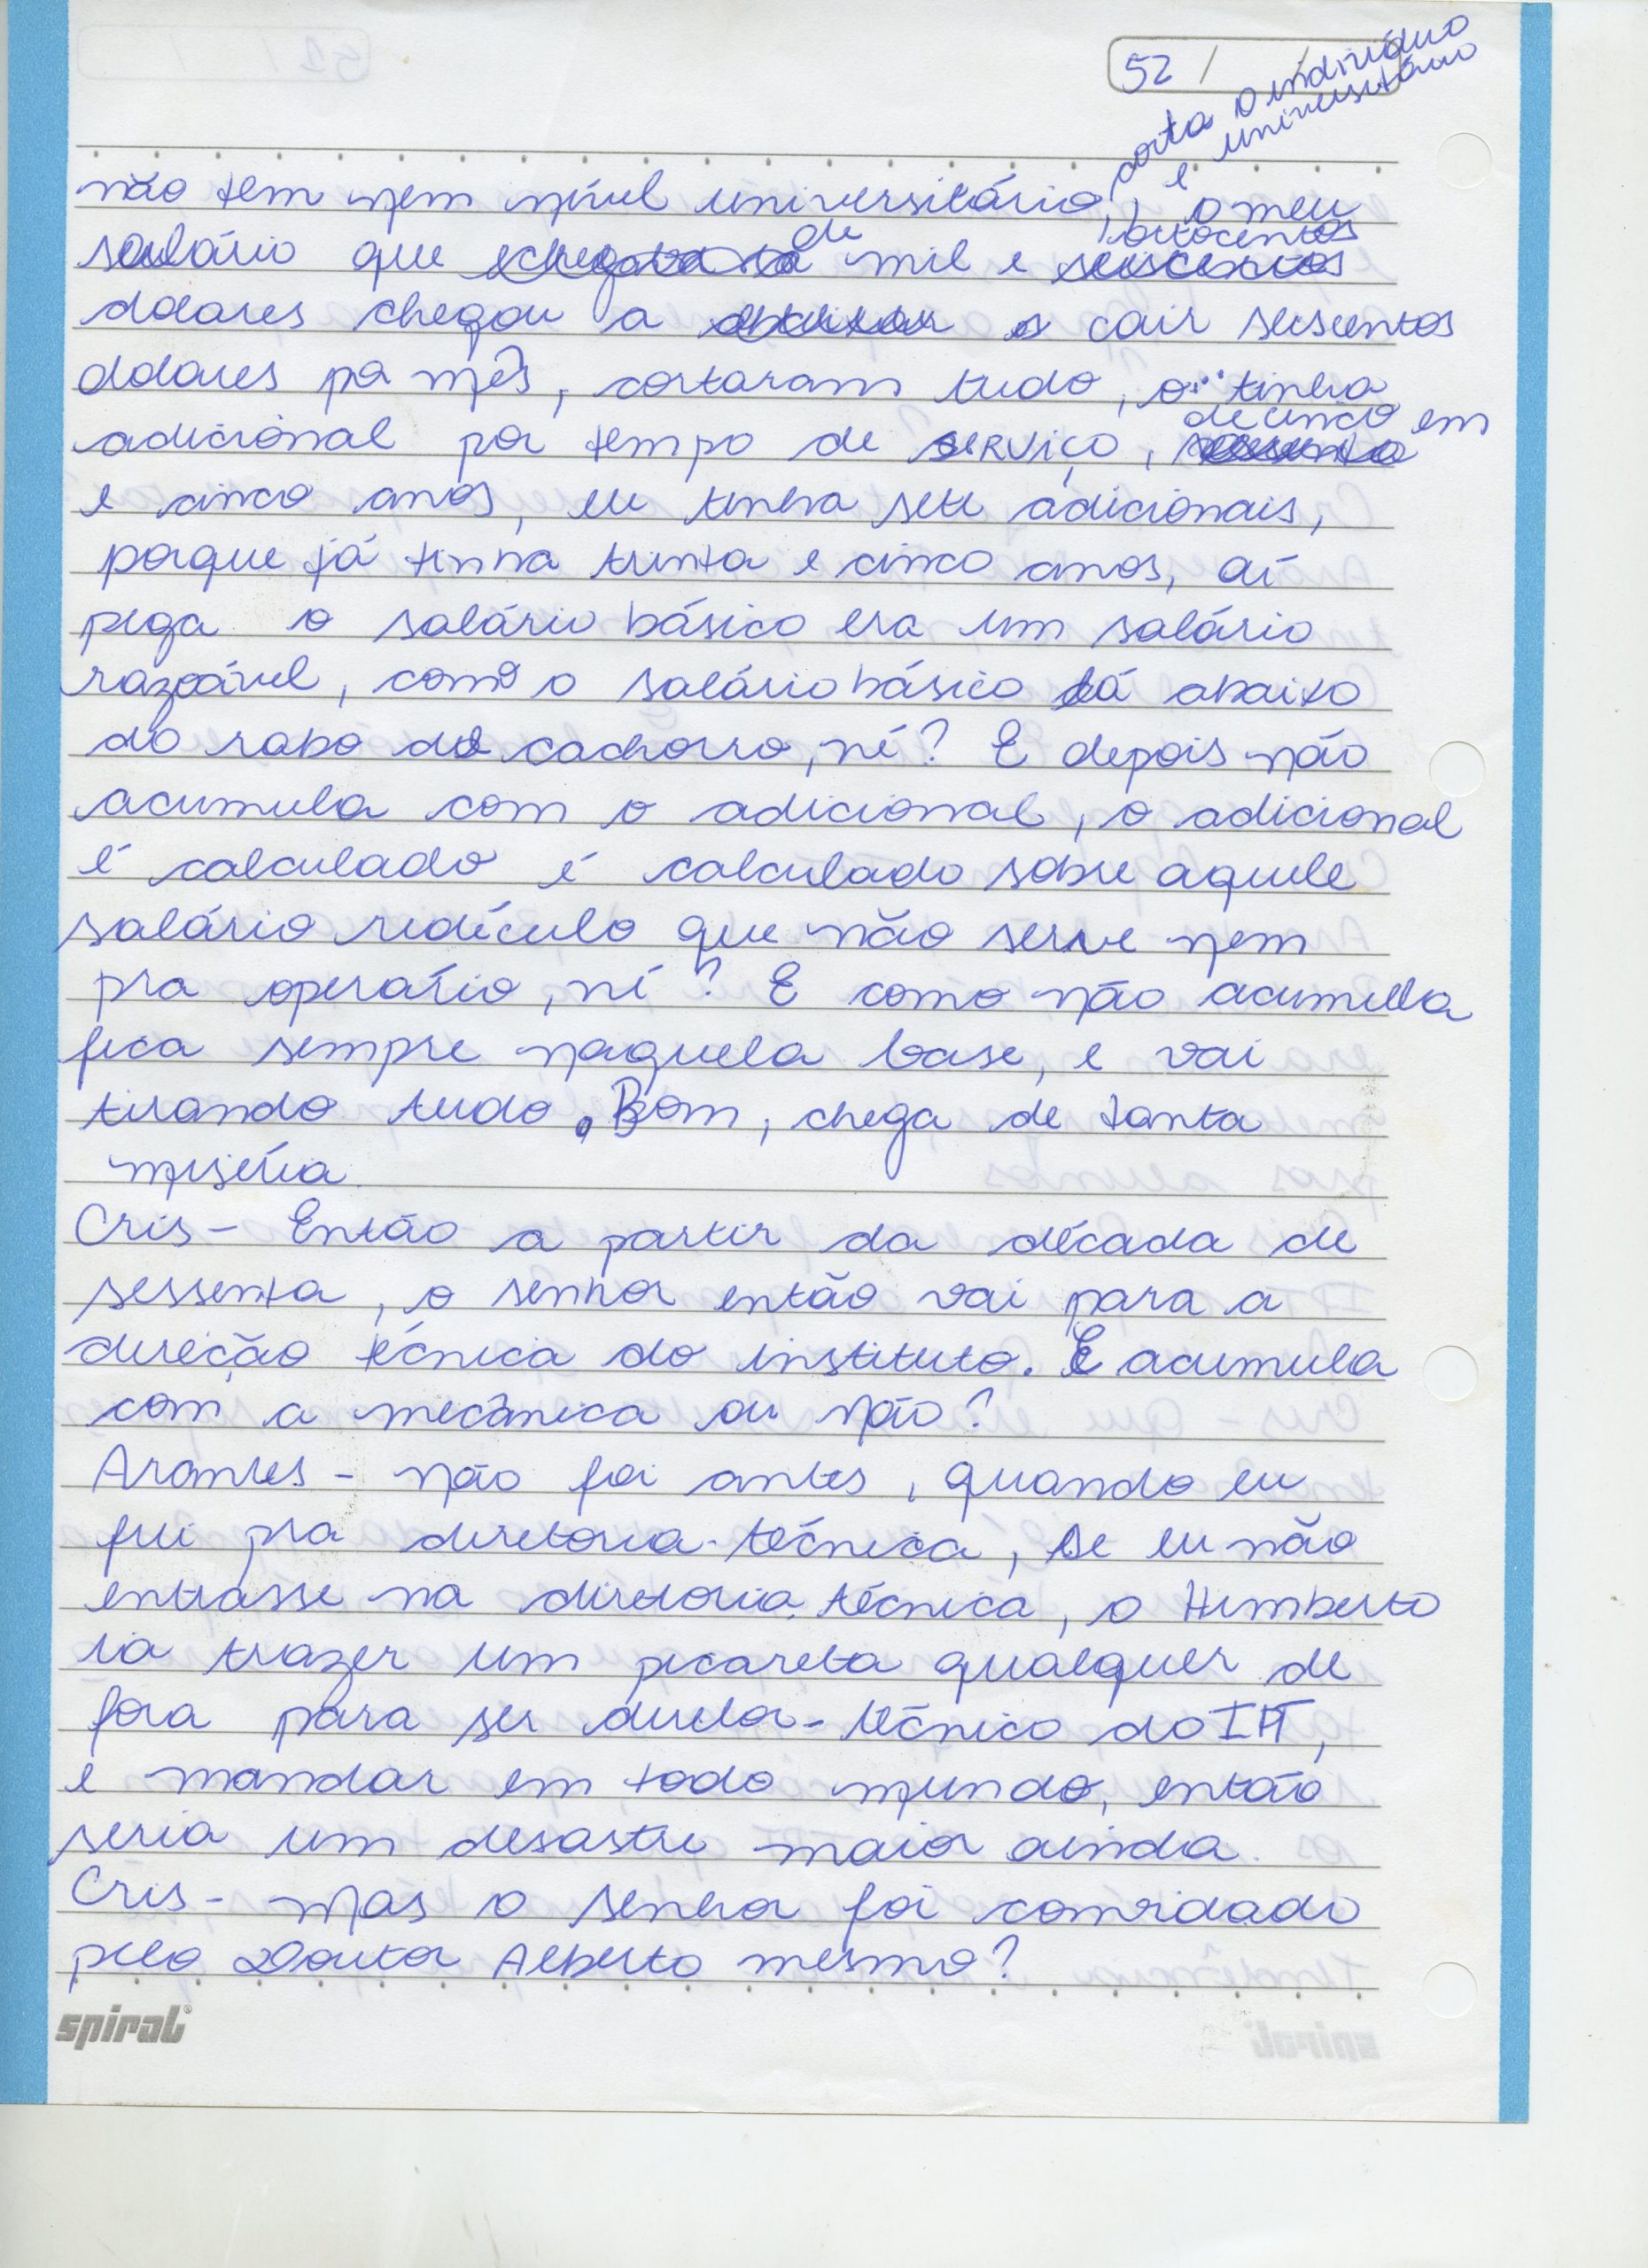 52 /      /
corta o indivíduo
e universitário
não tem nem nível universitário, o meu
salário que de mil e oitocentos
dolares chegou a cair seiscentos
dolares por mês, cortaram tudo, o... tinha
adicional por tempo de serviço, de cinco em
e cinco anos, eu tinha sete adicionais,
porque já tinha trinta e cinco anos, aí
pega o salário básico era um salário
razoável, como o salário básico tá abaixo
do rabo do cachorro, né? E depois não
acumula com o adicional, o adicional
é calculado é calculado sobre aquele
salário ridículo que não serve nem
pra operário, né? E como não acumula
fica sempre naquela base, e vai
tirando tudo. Bom, chega de tanta
miséria.
Cris - Então a partir da década de
sessenta, o senhor então vai para a
direção técnica do instituto. E acumula
com a mecânica ou não?
Arantes - não foi antes, quando eu
fui pra diretoria-técnica, se eu não
entrasse na diretoria técnica, o Humberto
ia trazer um picareta qualquer de
fora para ser diretor-técnico do IPT,
e mandar em todo mundo, então
seria um desastre maior ainda.
Cris - Mas o senhor foi convidado
pelo Doutor Alberto mesmo?
spiral®